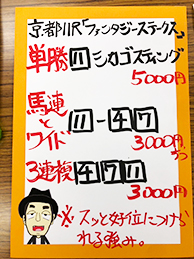 京都11R「ファンタジーステークス」
単勝 11 シカゴスティング
5000円
馬連とワイド 11-4 7
3000円ずつ
3連複 4 7 11
3000円
※スッと好位につけ
れる強み。